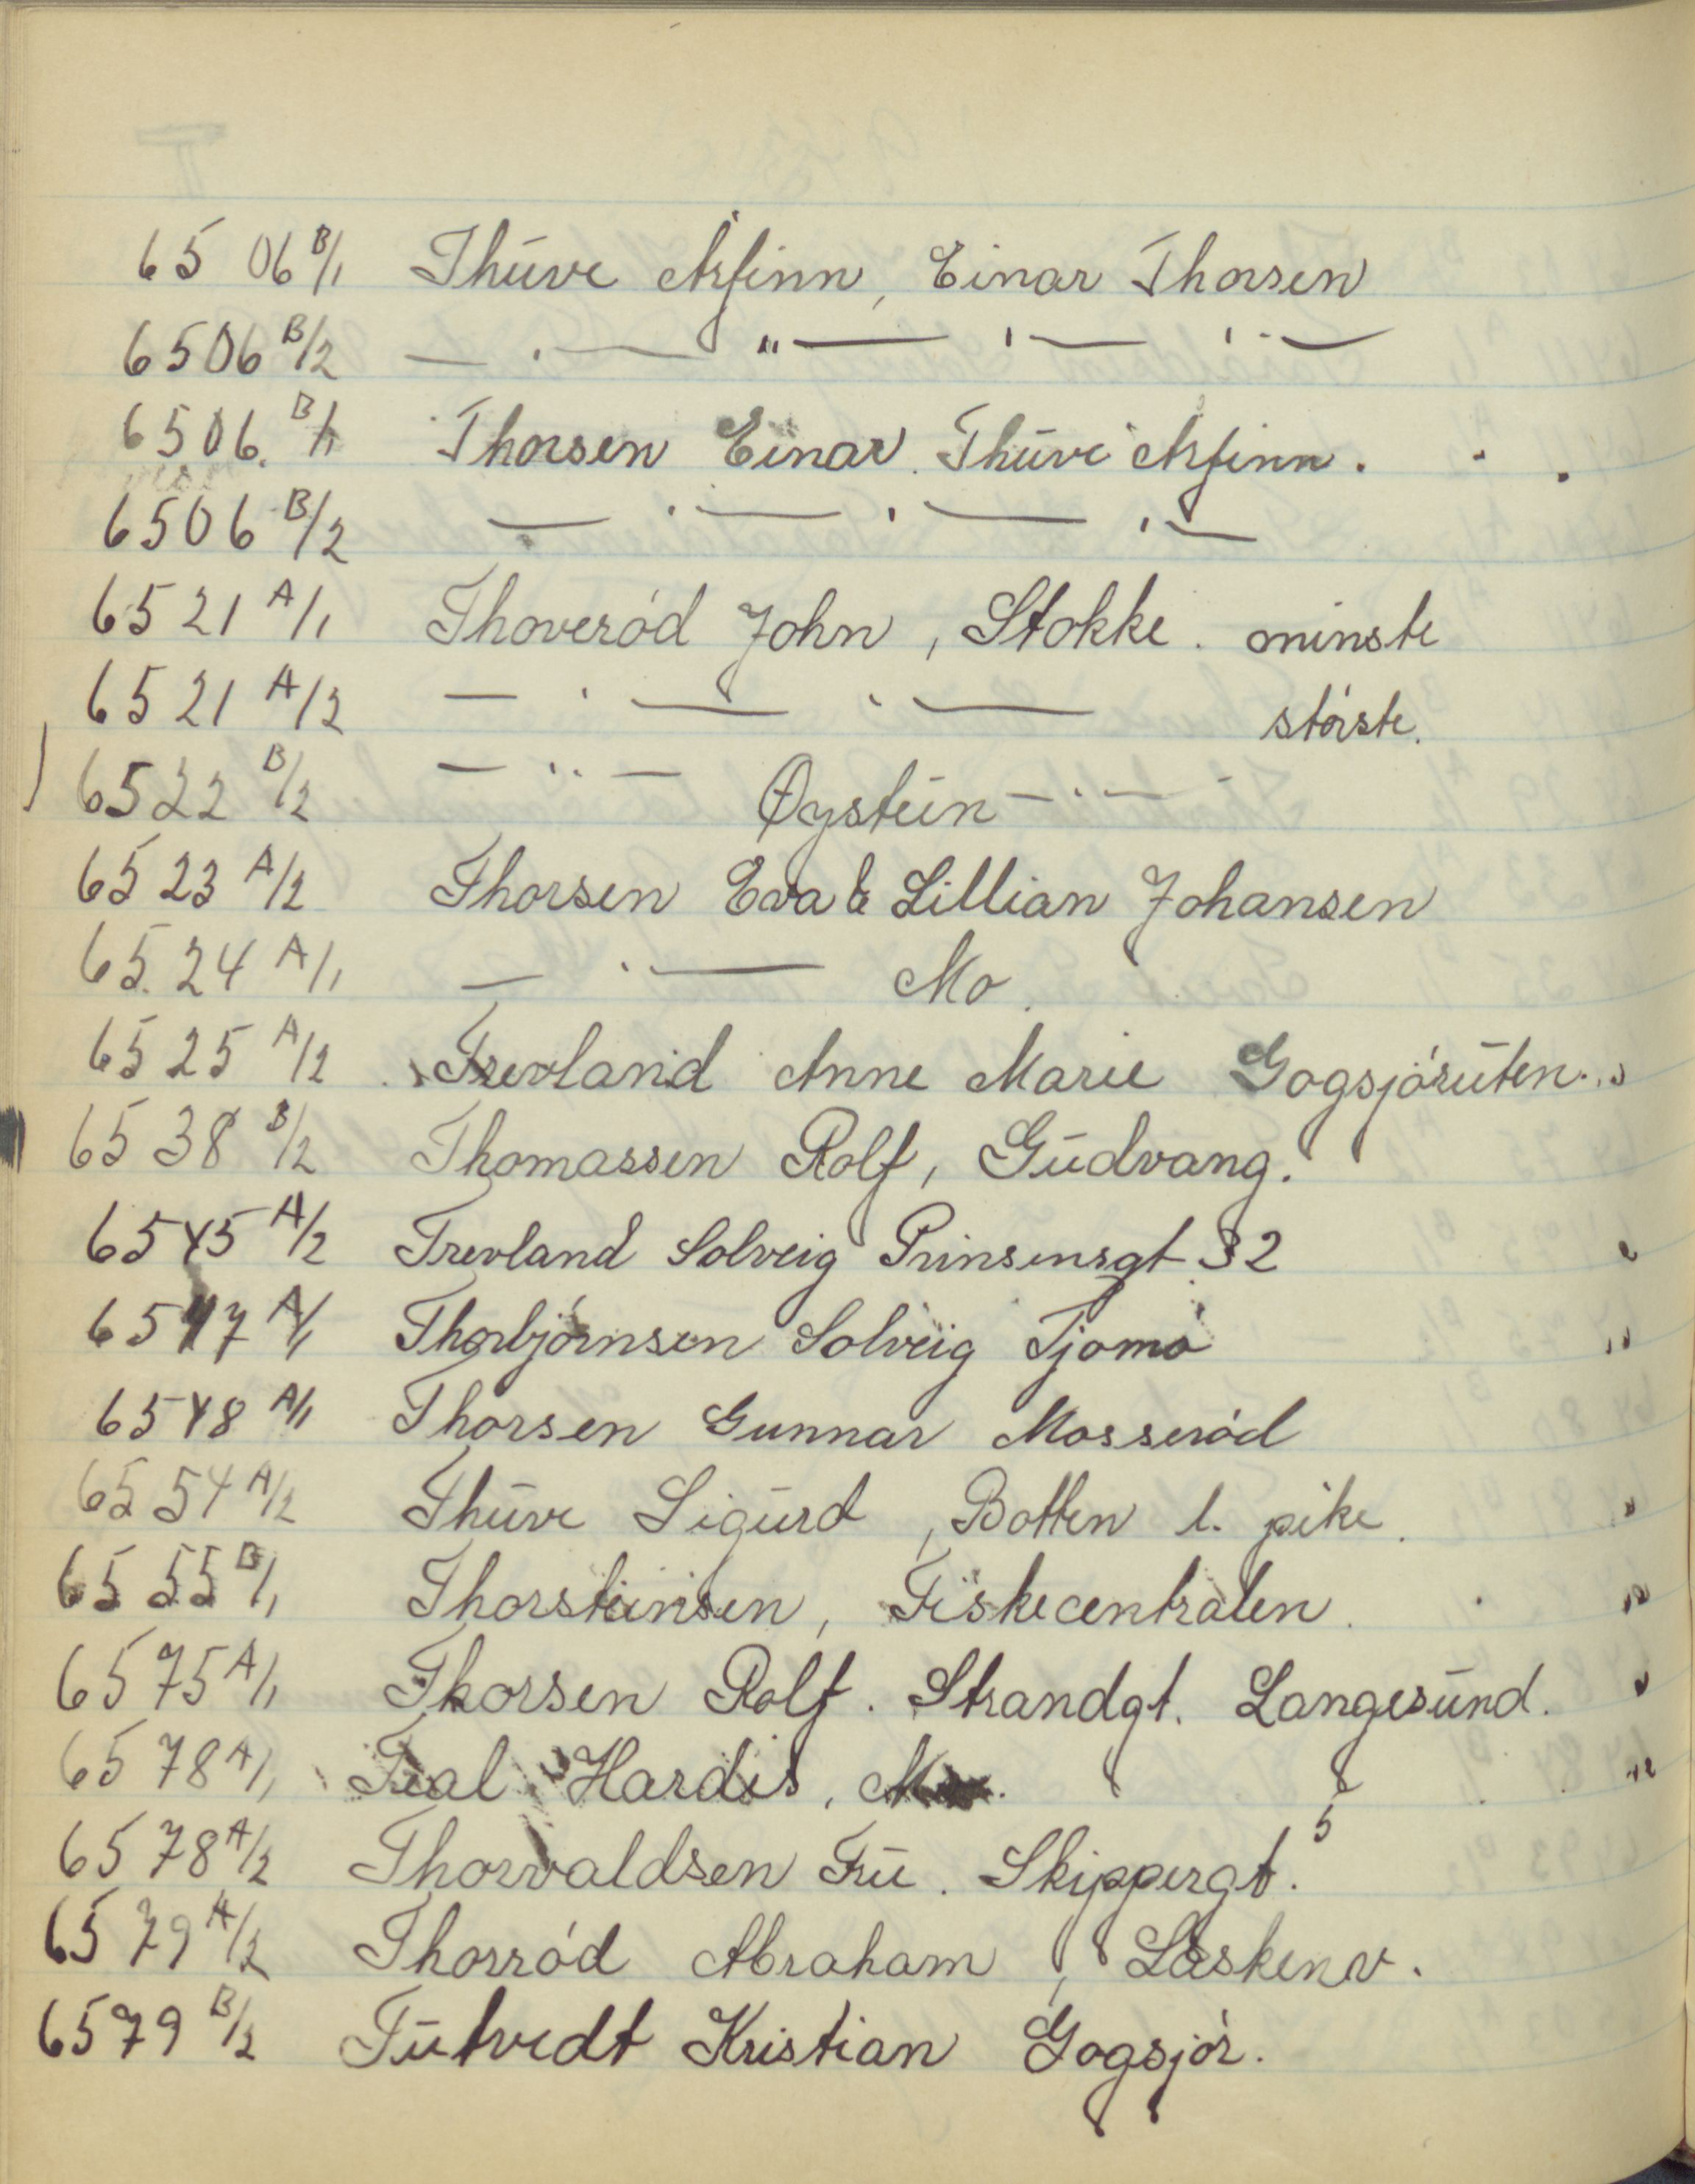 6506 B/1 Thüve Arfinn, Einar Thorsen
6506 B/2 — · — " — ' — ' · —
6506. B/1 Thorsen Einar. Thüve Arfinn.
6506 B/2 — ' — ' — ' —
6521 A/1 Thoveród John, Stokke. minste
6521 A/2 — ' — ' — störste.
6522 B/2 — ·· — Øystein — · —
6523 A/2 Thorsen Eva & Lillian Johansen
6524 A/1 — ' — Mo.
6525 A/2 Trevland Anne Marie Gogsjórüten.
6538 B/2 Thomassen Rolf, Güdvang.
6545 A/2 Trevland Solveig Prinsensgt 32
6547 A/1 Thorbjórnsen Solveig Tjømó
6548 A/1 Thorsen Gunnar Mosseród
6554 A/2 Thüve Sigürd, Botten l. pike.
6555 B/1 Thorsteinsen, Fiskecentralen.
6575 A/1 Thorsen Rolf. Strandgt. Langesünd.
6578 A/1 Teal Hardis,
6578 A/2 Thorvaldsen Frü. Skippergt. 5
6579 A/2 Thorród Abraham, Løskenv.
6579 B/2 Tütvedt Kristian Gogsjór.